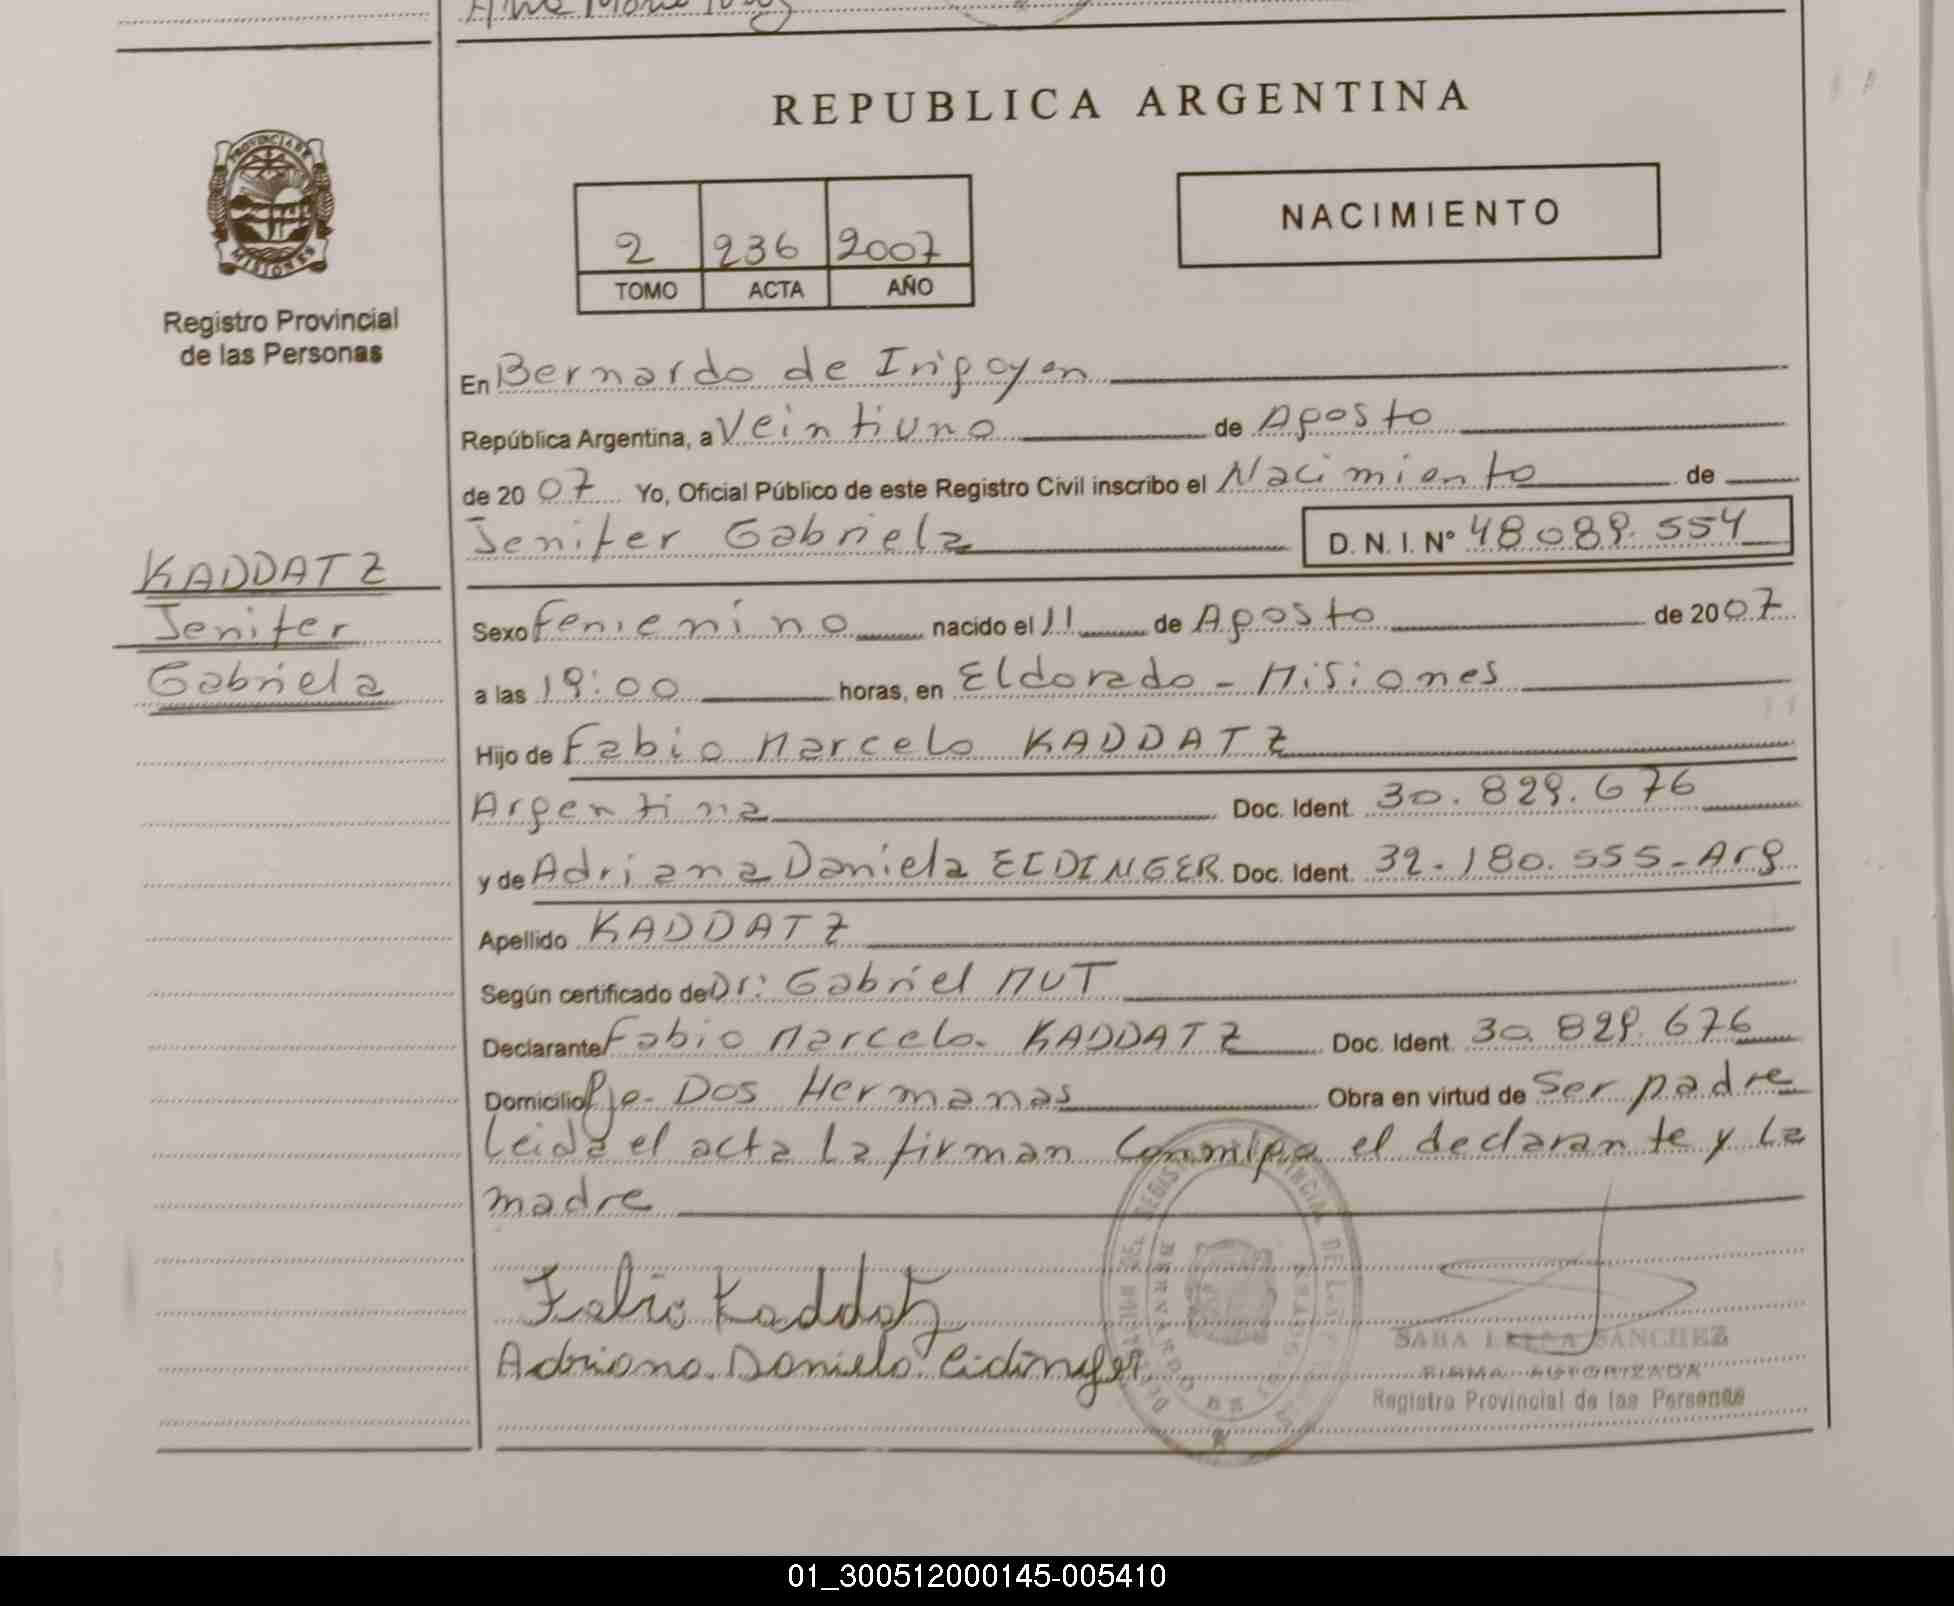 REPUBLICA ARGENTINA
PROVINCIA DE
MISIONES
Registro Provincial
de las Personas
2 236 2007
TOMO ACTA AÑO
NACIMIENTO
En Bernardo de Irigoyen
República Argentina, a Veintiuno de Agosto
de 20 07 Yo, Oficial Público de este Registro Civil inscribo el Nacimiento de
Jenifer Gabriela D. N. I. Nº 48 089.554
KADDATZ
Jenifer
Gabriela
Sexo Femenino nacido el 11 de Agosto de 20 07
a las 19:00 horas, en Eldorado - Misiones
Hijo de Fabio Marcelo KADDATZ
Argentina Doc. Ident. 30.829.676
y de Adriana Daniela EIDINGER Doc. Ident. 32.180.555-Arg
Apellido KADDATZ
Según certificado de Dr: Gabriel MUT
Declarante Fabio Marcelo KADDATZ Doc. Ident. 30.829.676
Domicilio Pje. Dos Hermanas Obra en virtud de Ser padre
Leida el acta la firman Conmigo el declarante y la
madre
Fabio Kaddatz
Adriana Daniela Eidinger
SANCHEZ
FIRMA AUTORIZADA
Registro Provincial de las Personas
01_300512000145-005410